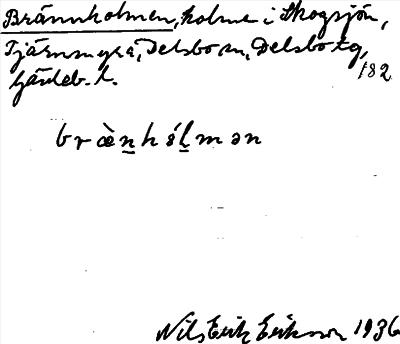 Brännholmen, holme i Skogsjön,
Tjärnmyra, Delsbo sn, Delsbo tg,
Gävleb. l.
182
bræ̀n̲hól̲mən
Nils Erik Erikson 1936